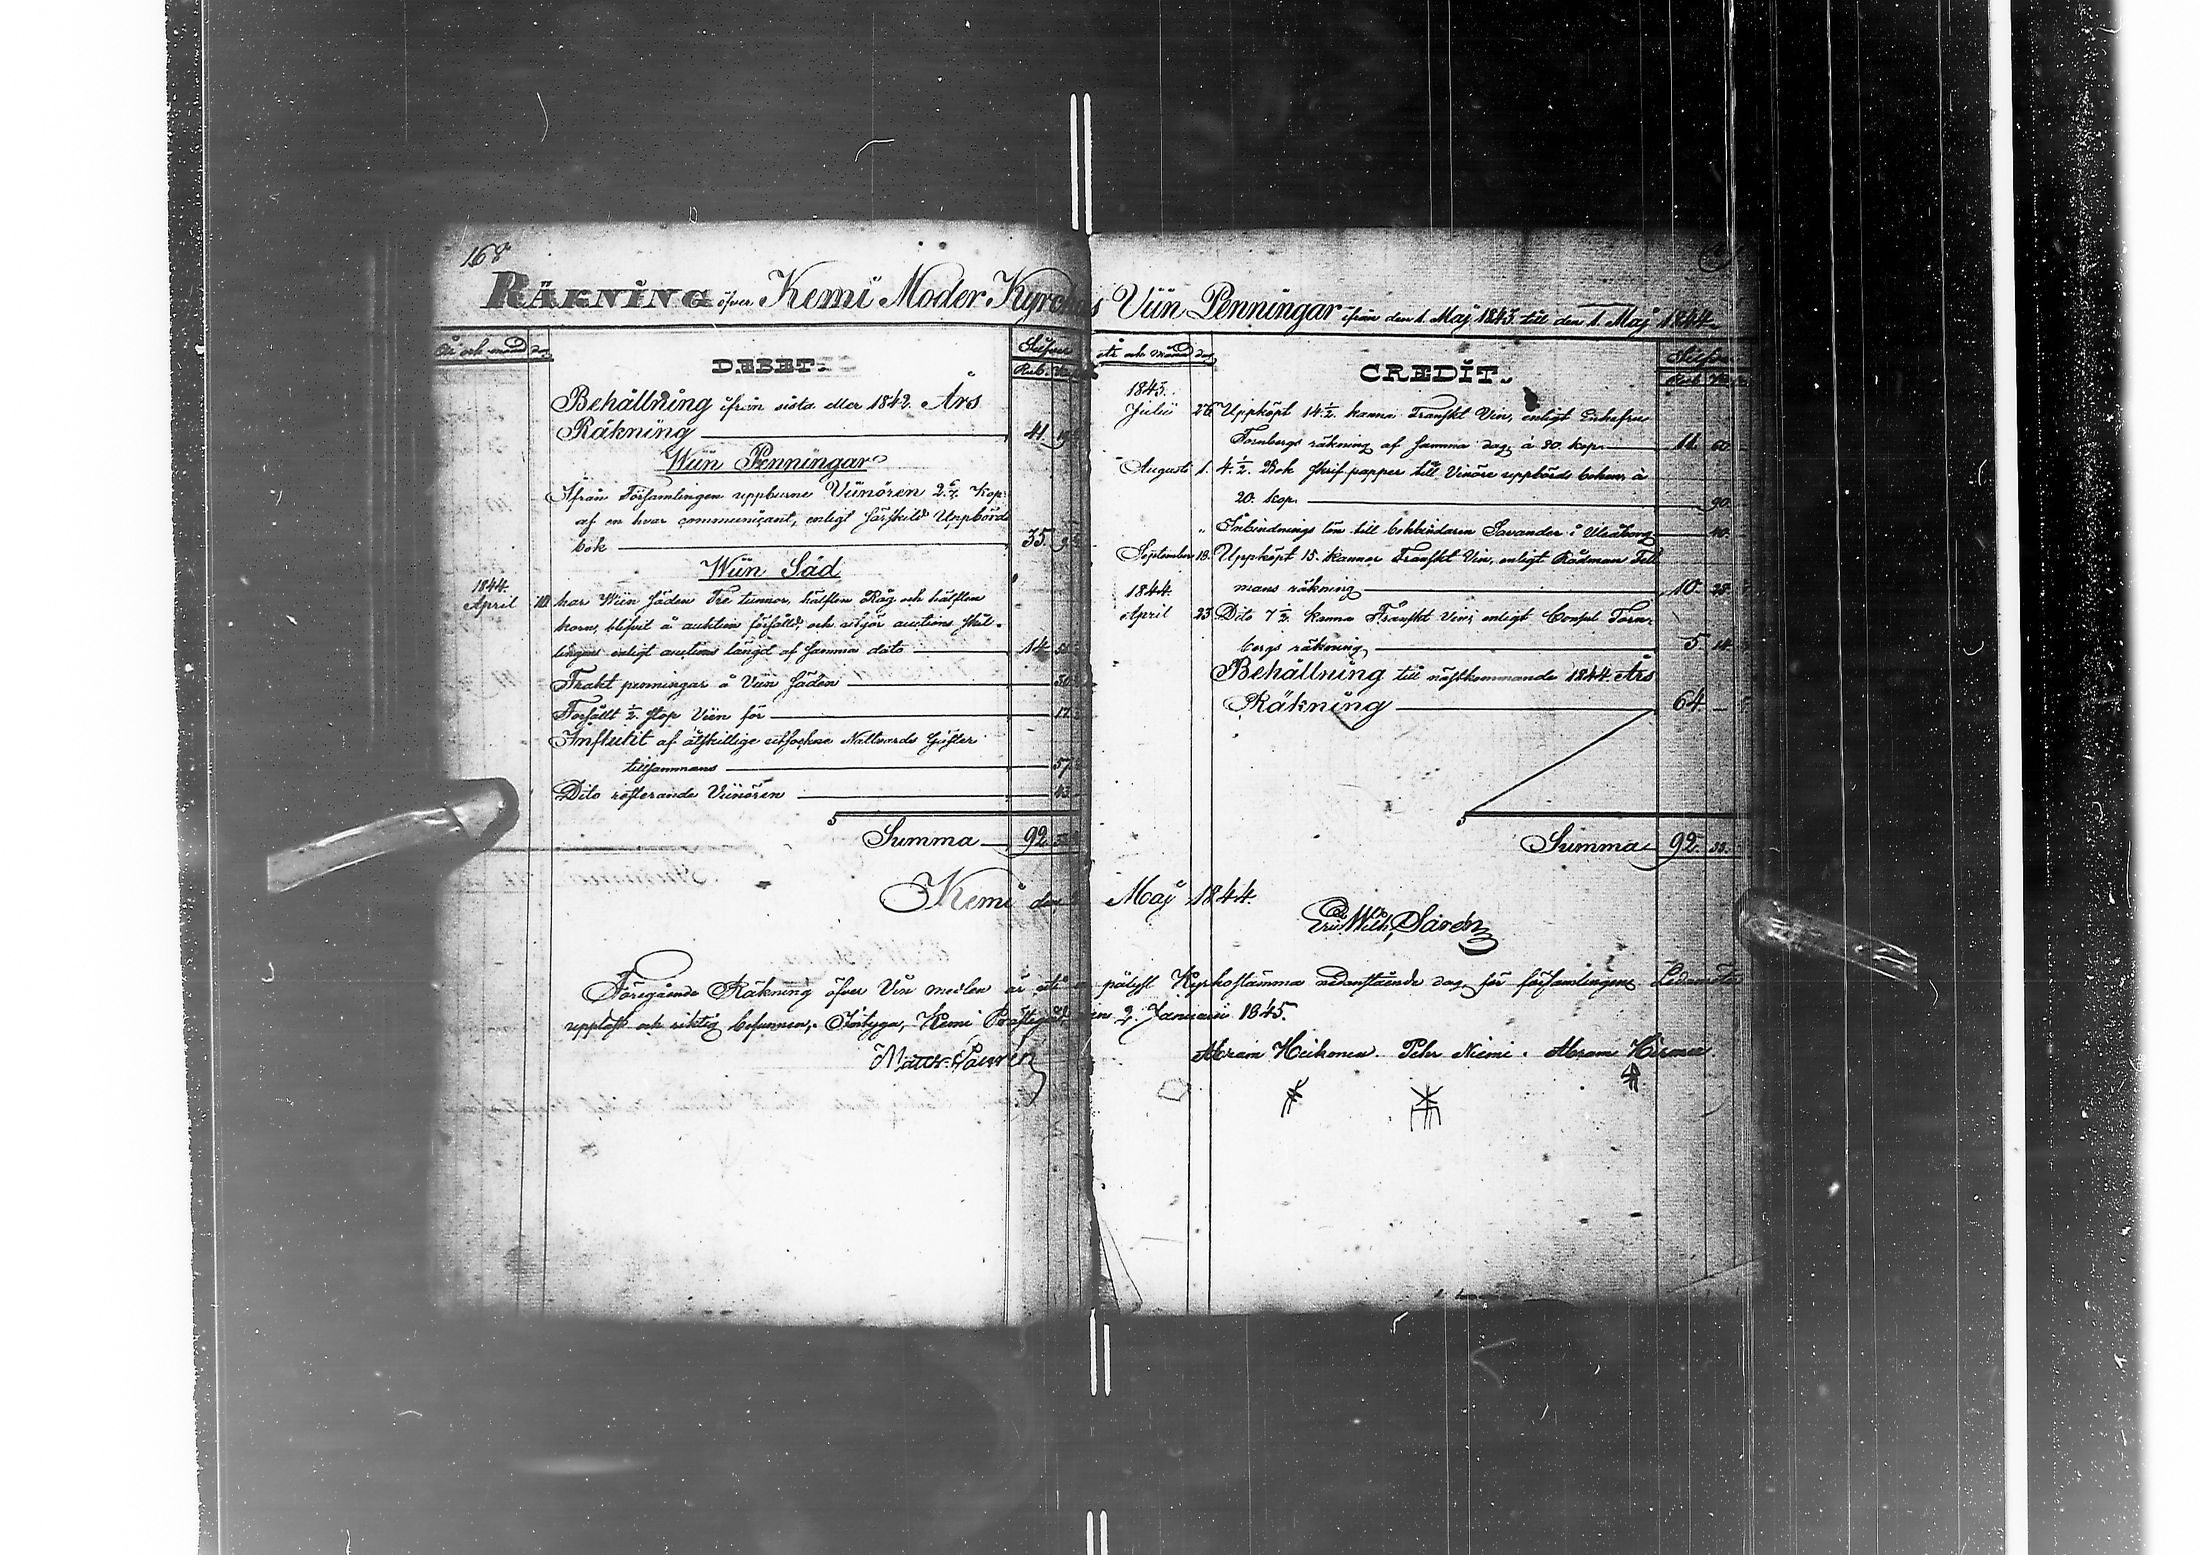 168
RÄKNING öfver Kemi Moder Kyrckas Viin Penningar ifrån den 1. Maj 1843. till den 1. Maj 1844.
År och månad dag
Silfver
DEBET.
Rub. Kop.
Behållning ifrån sista eller 1842. Års
Räkning 41
Wiin Penningar
Ifrån Församlingen uppburne Viinören 2. 6/7. Kop.
af en hvar communicant, enligt särskild Uppbörds
bok 35
Wiin Säd
1844.
April har Wiin Säden Tre tunnor, hälften Råg och hälften
korn, blifvit å auktion försåld, och utgör auctions skil-
lingen enligt auctions längd af samma dato 14
Frakt penningar å Viin Säden
Försållt 1/2. stop Viin för 17
Influtit af åtskillige utsockne Nattvards Gäster
tillsammans 57
Dito resterande Viinören
Summa 92
År och månad dag
Silfver
CREDIT.
Rub. Kop.
1843.
Julii 26 Uppköpt 14 1/2. kanna Franskt Vin, enligt Enkefru
Fornbergs räkning af samma dag, à 80. kop. 11. 60.
Augusti 1. 4. 1/2. Bok skrif papper till Vinöre uppbörds boken à
20. kop. 90.
" Inbindnings lön till bokbindaren Savander i Uleåborg 40.
September 18. Uppköpt 15. kannor Franskt Vin, enligt Rådman Fell
mans räkning 10.
1844.
April 23 Dito 7 1/2. kanna Franskt Vin, enligt Consul Forn-
bergs räkning 5. 14
Behållning till nästkommande 1844. Års
Räkning 64
Summa 92.
Kemi den Maj 1844.
Eric Wilh. Sarén
Föregående Räkning öfver Vin medlen är uti en pålyst Kyrkostämma nedanstående dag för församlingens Ledamöter
uppläst och riktig befunnen. Intyga, Kemi Prästegård den 2. Januarii 1845.
Matts Lauren
Abram Heikonen. Petr Niemi. Abram Hirmu.